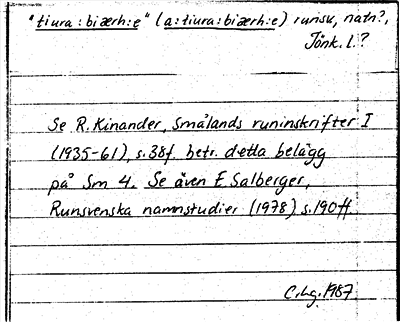 "tiura : biærh:e" (a:tiura:biærh:e) runsv, natn?,
Jönk. l.?
Se R. Kinander, Smålands runinskrifter I
(1935-61), s. 38f. betr. detta belägg
på Sm 4. Se även E. Salberger,
Runsvenska namnstudier (1978) s. 190 ff.
C.hg. 1987